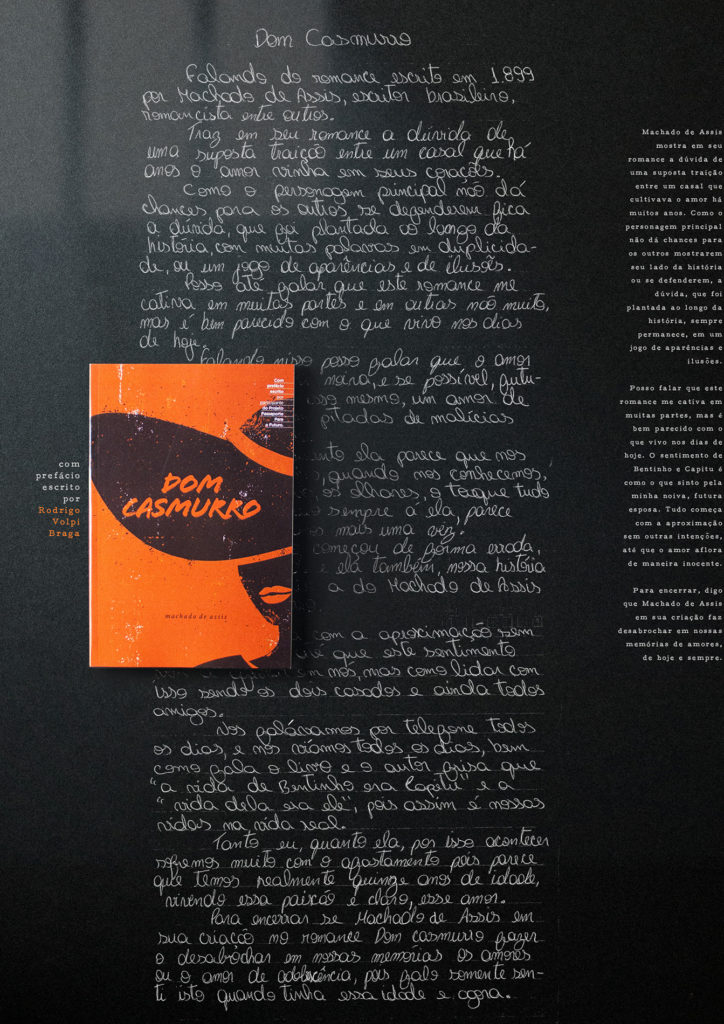 Dom Casmurro
Falando do romance escrito em 1.899
por Machado de Assis, escritor brasileiro,
romancista entre outros.
Traz em seu romance a dúvida de
uma suposta traição entre um casal que há
anos o amor vinha em seus corações.
Como o personagem principal não dá
chances para os outros se defenderem fica
a dúvida, que foi plantada ao longo da
história, com muitas palavras em duplicida-
de, ou um jogo de aparências e de ilusões.
Posso até falar que este romance me
cativa em muitas partes e em outras não muito,
mas é bem parecido com o que vivo nos dias
de hoje.
Falando nisso posso falar que o amor
noiva, e se possível, futu-
isso mesmo, um amor de
pitadas de malícias
ela parece que nos
quando nos conhecemos,
os olhares, o toque tudo
sempre a ela, parece
mais uma vez.
começou de forma errada,
e ela também, nossa história
a do Machado de Assis
com a aproximação sem
que este sentimento
em nós, mas como lidar com
isso sendo os dois casados e ainda todos
amigos.
Nos falávamos por telefone todos
os dias, e nos víamos todos os dias, bem
como fala o livro e o autor frisa que
"a vida de Bentinho era Capitu" e a
"vida dela era ele", pois assim é nossas
vidas na vida real.
Tanto eu, quanto ela, por isso acontecer
sofremos muito com o afastamento pois parece
que temos realmente quinze anos de idade,
vivendo essa paixão e claro, esse amor.
Para encerrar se Machado de Assis em
sua criação no romance Dom Casmurro fazer
o desabrochar em nossas memórias os amores
ou o amor de adolescência, pois falo somente sen-
ti isto quando tinha essa idade e agora.
com
prefácio
escrito
por
Rodrigo
Volpi
Braga
Com
prefácio
escrito
por
participante
do Projeto
Passaporte
Para
o Futuro.
DOM
CASMURRO
machado de assis
Machado de Assis
mostra em seu
romance a dúvida de
uma suposta traição
entre um casal que
cultivava o amor há
muitos anos. Como o
personagem principal
não dá chances para
os outros mostrarem
seu lado da história
ou se defenderem, a
dúvida, que foi
plantada ao longo da
história, sempre
permanece, em um
jogo de aparências e
ilusões.
Posso falar que este
romance me cativa em
muitas partes, mas é
bem parecido com o
que vivo nos dias de
hoje. O sentimento de
Bentinho e Capitu é
como o que sinto pela
minha noiva, futura
esposa. Tudo começa
com a aproximação
sem outras intenções,
até que o amor aflora
de maneira inocente.
Para encerrar, digo
que Machado de Assis
em sua criação faz
desabrochar em nossas
memórias de amores,
de hoje e sempre.